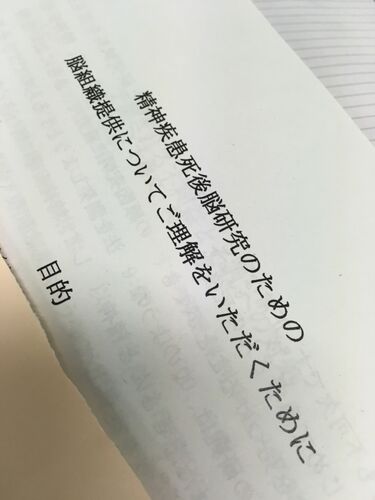 精神疾患死後脳研究のための
脳組織提供についてご理解をいただくために
目的